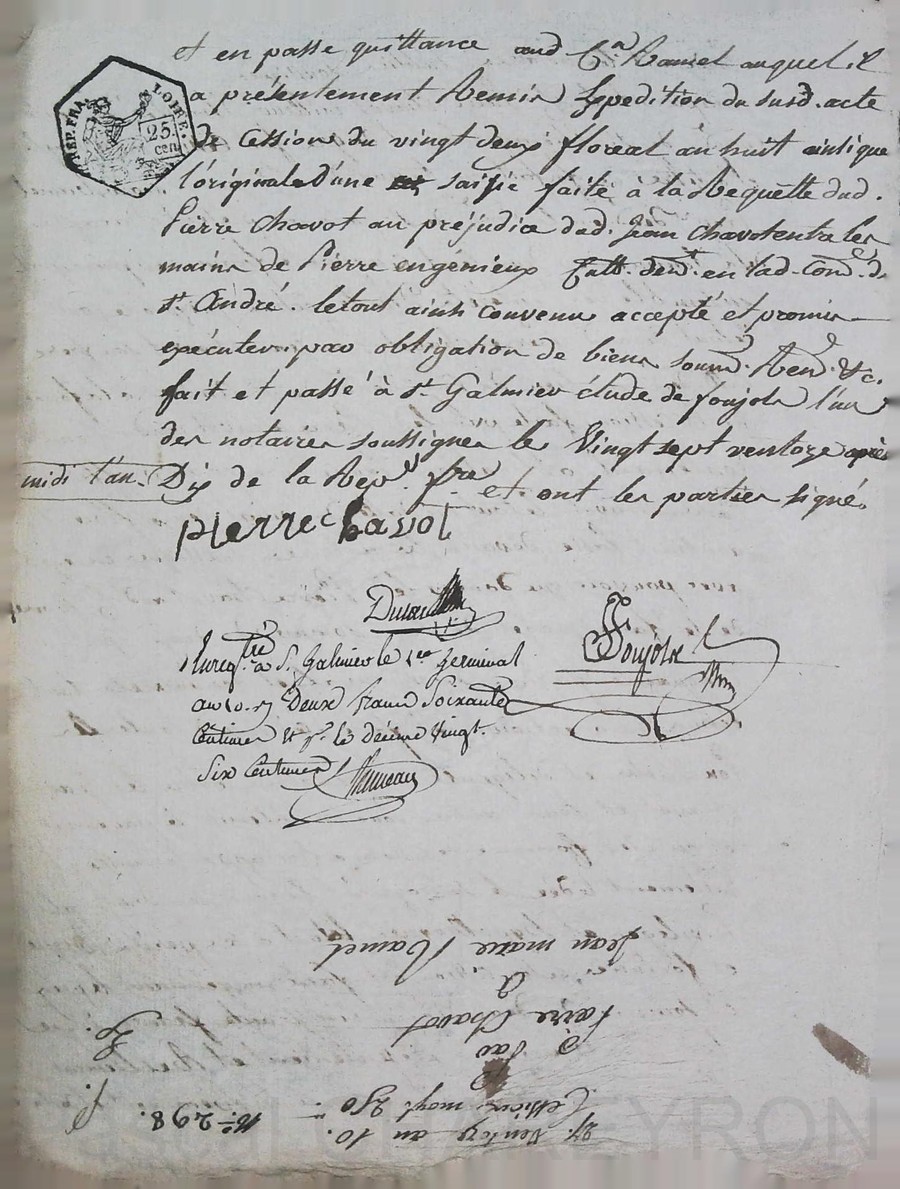 et en passe quittance aud C.n Ramel auquel il
a présentement Remis Expedition du susd. acte
De Cession du vingt deux floreal an huit ainsi que
l'originale d'une saisie faite à la Requette dud.
Pierre Chavot au préjudice dud. Jean Chavot entre les
mains de Pierre engénieux Cult. demt. en lad. Comé. de
St. André. le tout ainsi convenu accepté et promis
exécuter par obligation de biens soumd. Rend. &c.
fait et passé à St. Galmier étude de foujols l'un
des notaires soussignés le Vingt sept ventoze après
midi l'an Dix de la Repu. fre et ont les parties signé.
pierre chavot
Foujols
Enregtré à St. Galmier le 1er germinal
an 10. Deux francs Soixante
Centimes & pr. le décime Vingt
Six Centimes
REP. FRA.
LOIRE.
25
cen
27. Ventoze an 10.
Cession moyt. 250
No. 298.
Par
Pierre Chavot
à
Jean marie Ramel